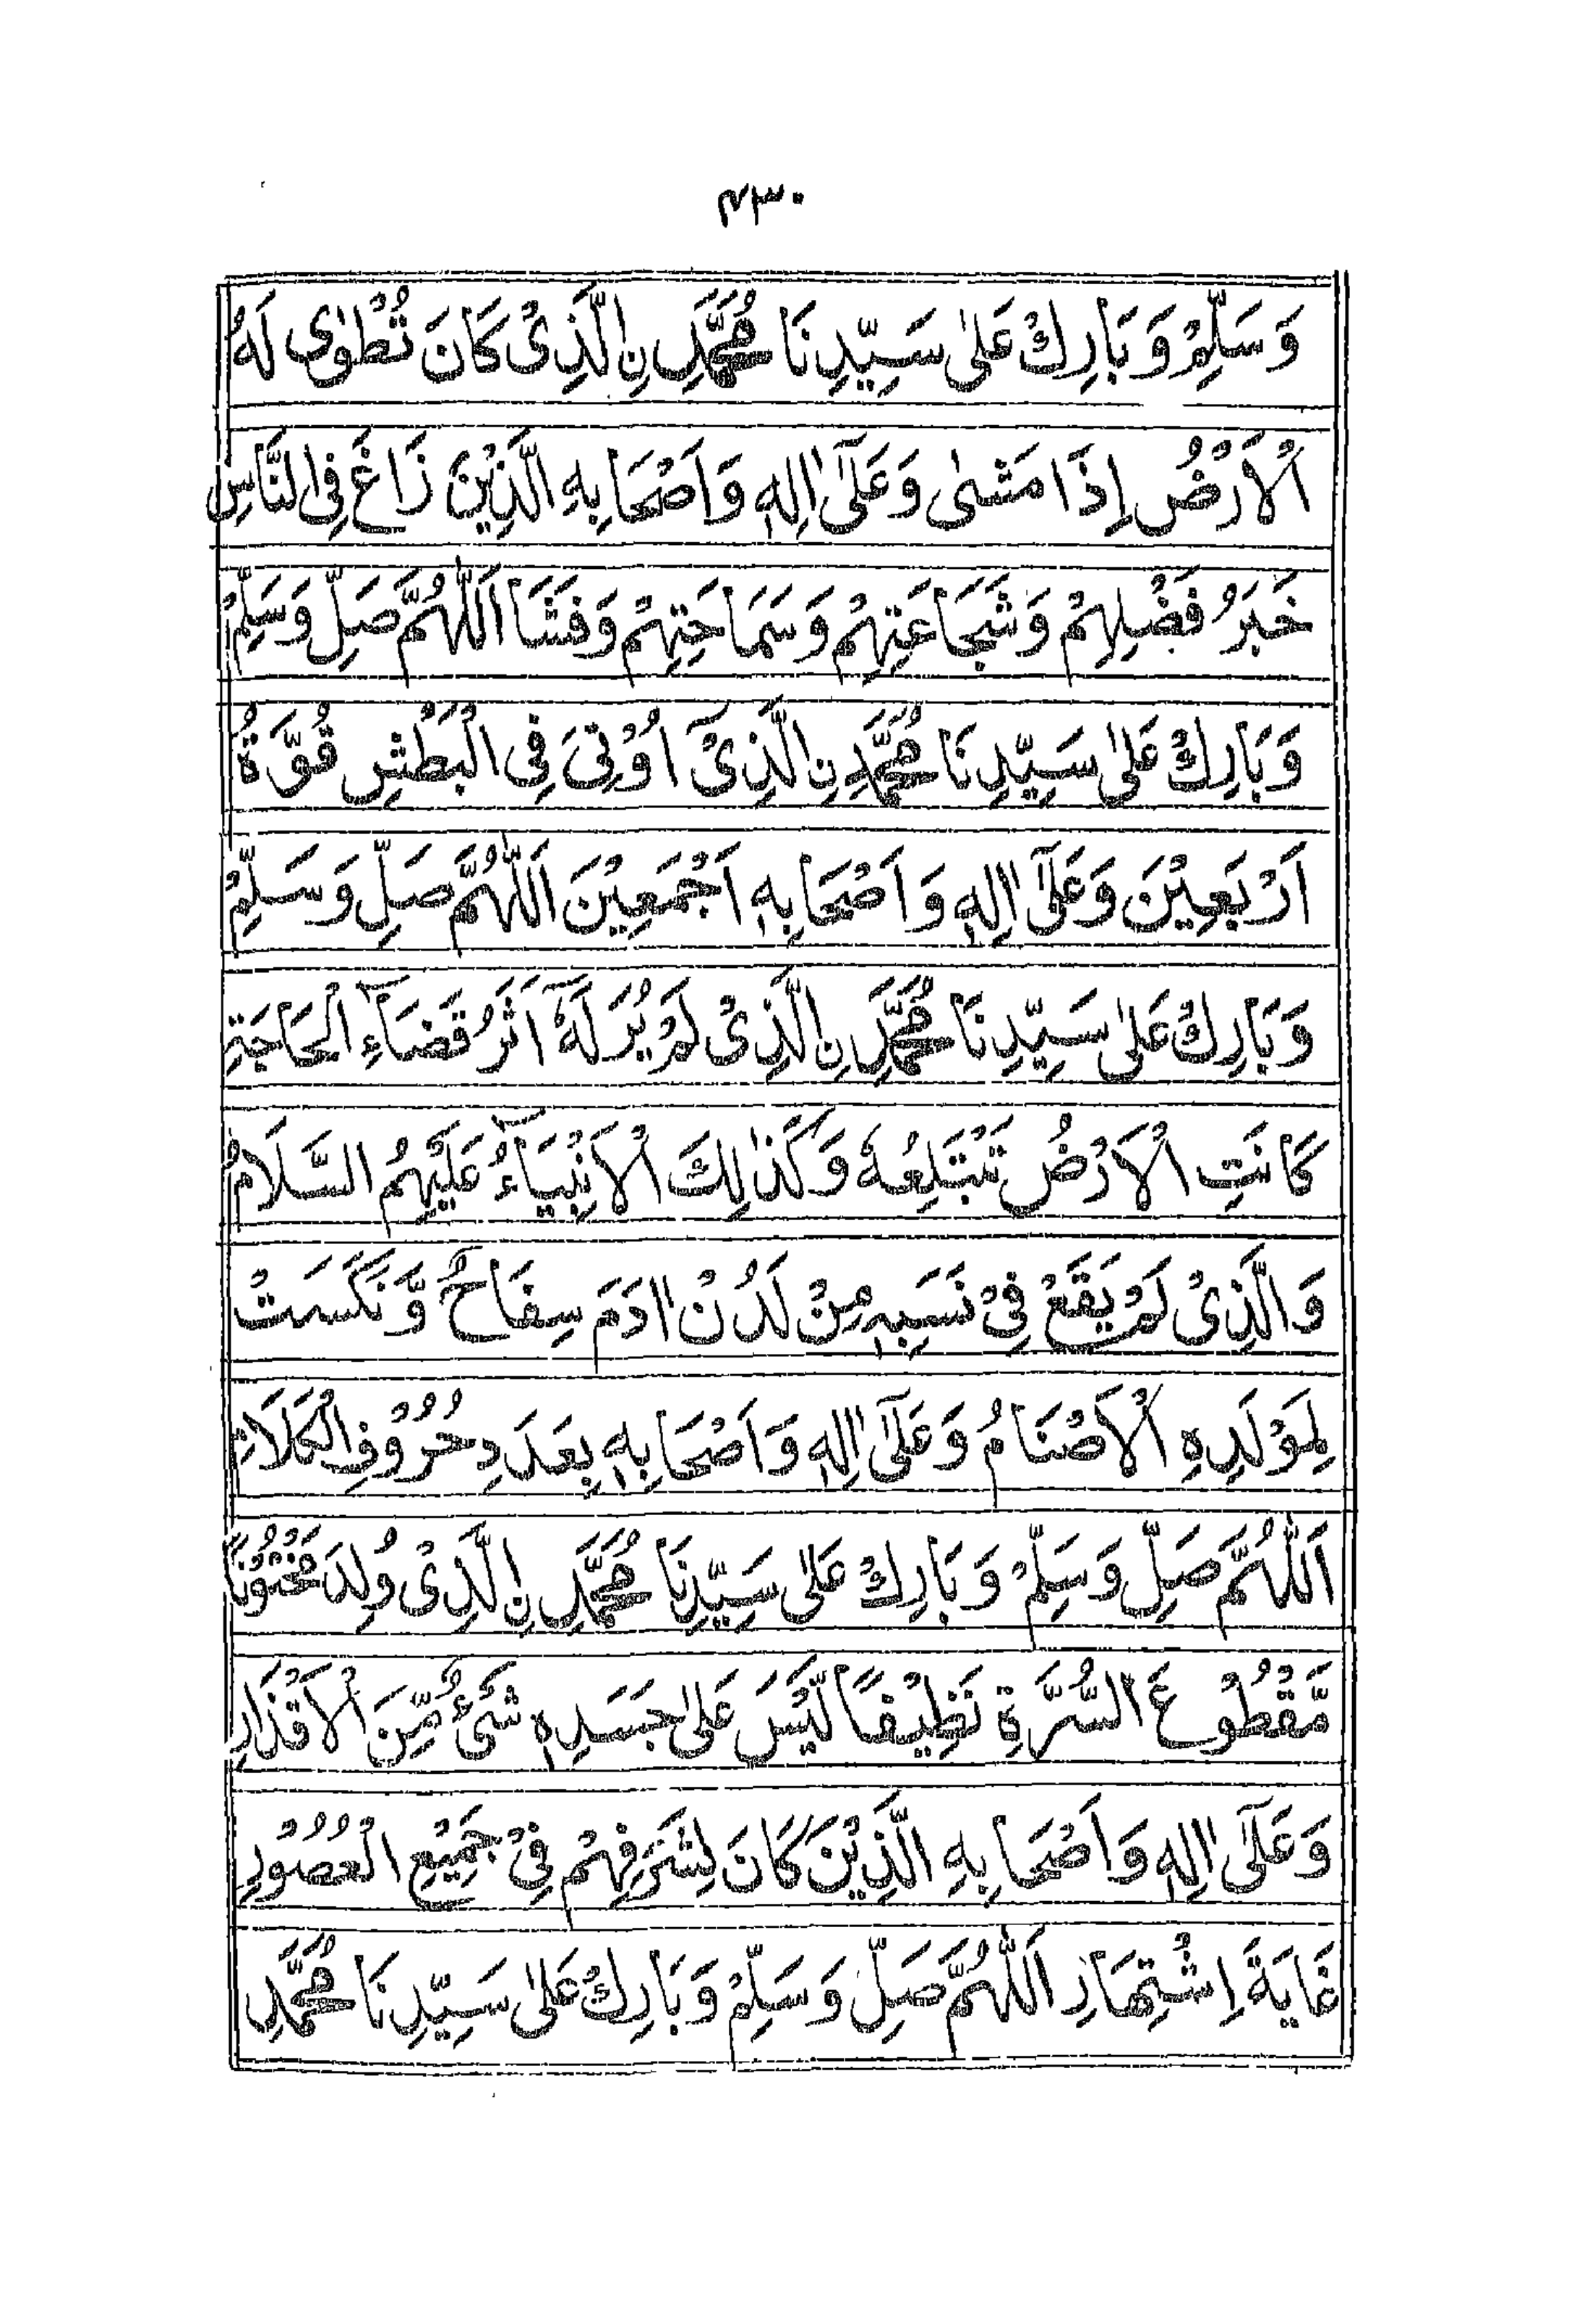 ۲۳۰
وَسَلِّمْ وَبَارِكْ عَلٰى سَيِّدِنَا مُحَمَّدِ نِ الَّذِىْ كَانَ تُطْوٰى لَهُ
الْاَرْضُ اِذَا مَشٰى وَعَلٰٓى اٰلِهٖ وَاَصْحَابِهِ الَّذِيْنَ زَاغَ فِى النَّاسِ
خَبَرُ فَضْلِهِمْ وَشَجَاعَتِهِمْ وَسَمَاحَتِهِمْ وَفَشَا اَللّٰهُمَّ صَلِّ وَسَلِّمْ
وَبَارِكْ عَلٰى سَيِّدِنَا مُحَمَّدِ نِ الَّذِىْٓ اُوْتِىَ فِى الْبَطْشِ قُوَّةُ
اَرْبَعِيْنَ وَعَلٰٓى اٰلِهٖ وَاَصْحَابِهٖ اَجْمَعِيْنَ اَللّٰهُمَّ صَلِّ وَسَلِّمْ
وَبَارِكْ عَلٰى سَيِّدِنَا مُحَمَّدِ نِ الَّذِىْ لَمْ يُرَ لَهٗٓ اَثَرُ قَضَآءِ الْحَاجَةِ
كَانَتِ الْاَرْضُ تَبْتَلِعُهٗ وَكَذٰلِكَ الْاَنْبِيَآءُ عَلَيْهِمُ السَّلَامُ
وَالَّذِىْ لَمْ يَقَعْ فِىْ نَسَبِهٖ مِنْ لَدُنْ اٰدَمَ سِفَاحٌ وَّنَكَسَتْ
لِمَوْلَدِهِ الْاَصْنَامُ وَعَلٰٓى اٰلِهٖ وَاَصْحَابِهٖ بِعَدَدِ حُرُوْفِ الْكَلَامِ
اَللّٰهُمَّ صَلِّ وَسَلِّمْ وَبَارِكْ عَلٰى سَيِّدِنَا مُحَمَّدِ نِ الَّذِىْ وُلِدَ مَخْتُوْنًا
مَّقْطُوْعَ السُّرَّةِ نَظِيْفًا لَّيْسَ عَلٰى جَسَدِهٖ شَىْءٌ مِّنَ الْاَقْذَارِ
وَعَلٰٓى اٰلِهٖ وَاَصْحَابِهِ الَّذِيْنَ كَانَ لِشَرَفِهِمْ فِىْ جَمِيْعِ الْعُصُوْرِ
غَايَةَ اِشْتِهَارِ اَللّٰهُمَّ صَلِّ وَسَلِّمْ وَبَارِكْ عَلٰى سَيِّدِنَا مُحَمَّدِ